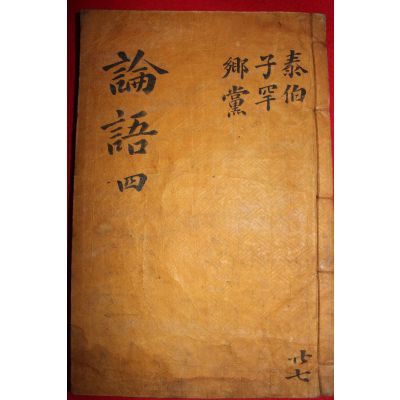 泰伯
子罕
鄉黨
論語 四
廿七